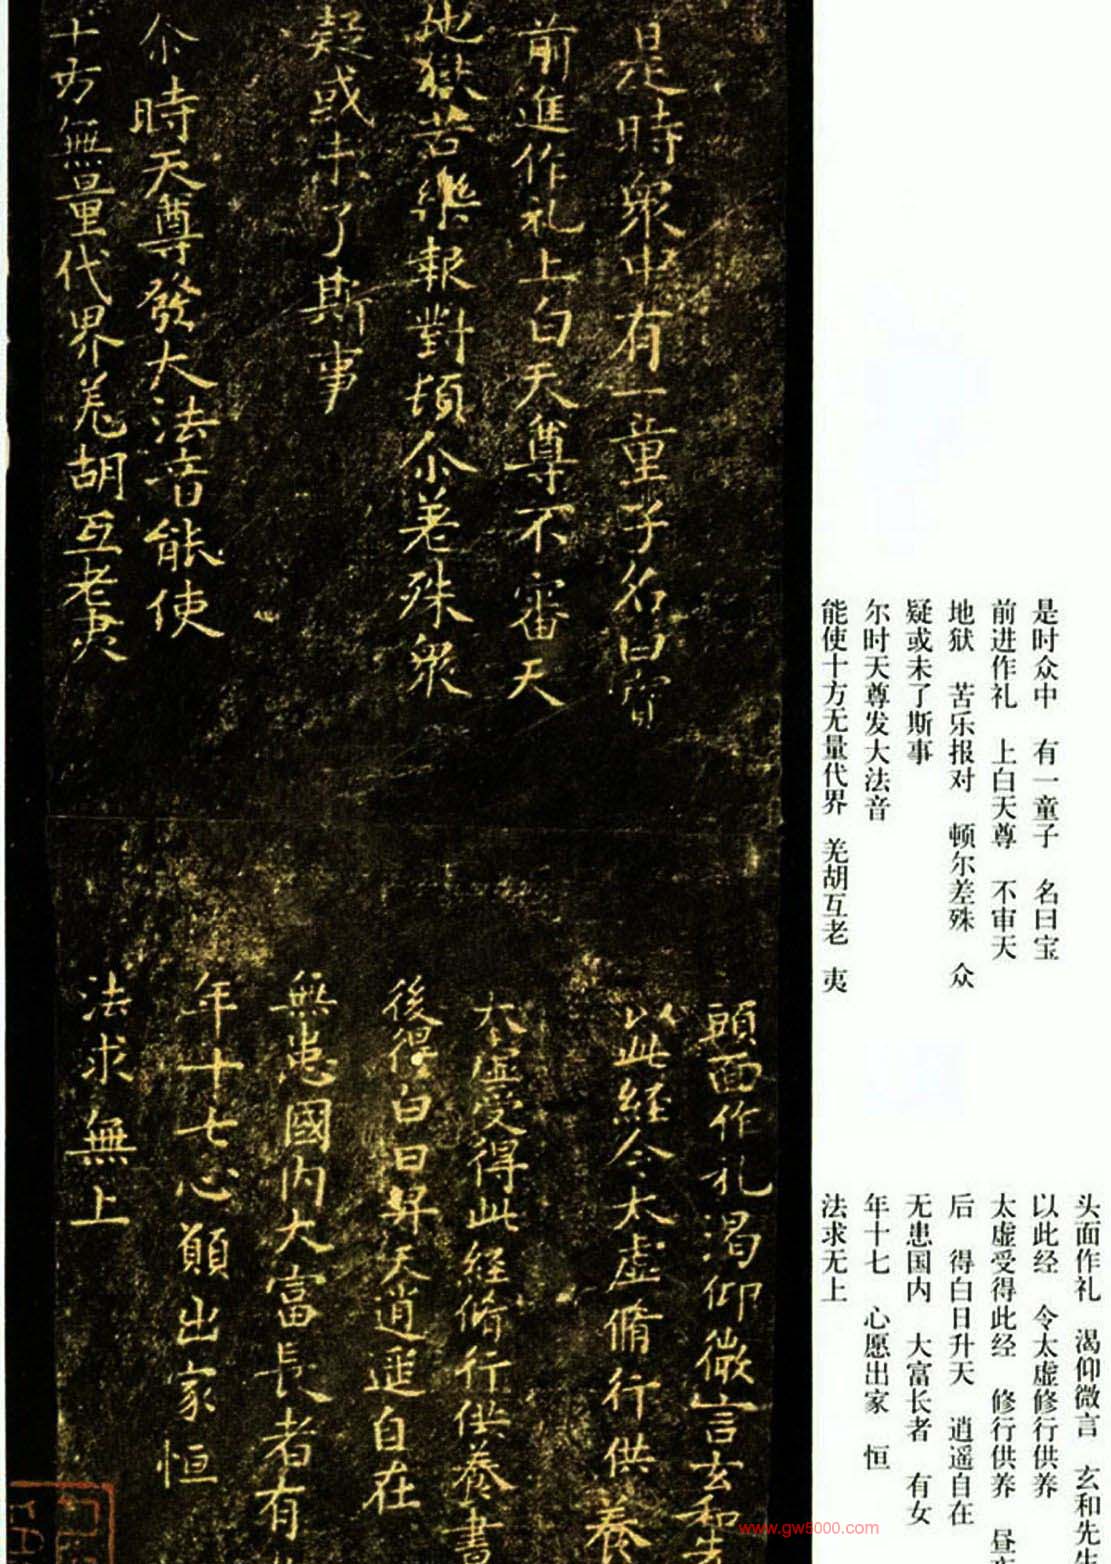 是時眾中有一童子名曰寳
前進作礼上白天尊不審天
地獄苦樂報對頓尒差殊眾
疑或未了斯事
尒時天尊發大法音能使
十方無量代界羗胡互老夷
頭面作礼渴仰微言玄和先
以此經令太虛脩行供養
太虛受得此經脩行供養書
後得白日昇天逍遥自在
無患國内大富長者有
年十七心願出家恒
法求無上
是时众中 有一童子 名曰宝
前进作礼 上白天尊 不审天
地狱 苦乐报对 顿尔差殊 众
疑或未了斯事
尔时天尊发大法音
能使十方无量代界 羌胡互老 夷
头面作礼 渴仰微言 玄和先生
以此经 令太虚修行供养
太虚受得此经 修行供养 昼夜
后 得白日升天 逍遥自在
无患国内 大富长者 有女
年十七 心愿出家 恒
法求无上
www.gw5000.com